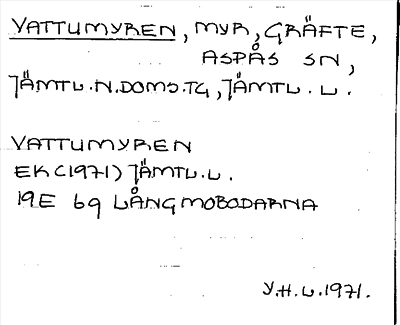 VATTUMYREN, MYR, GRÄFTE,
ASPÅS SN,
JÄMTL.N.DOMS.TG, JÄMTL. L.
VATTUMYREN
EK (1971) JÄMTL.L.
19E 6g LÅNGMOBODARNA
Y.H.L.1971.